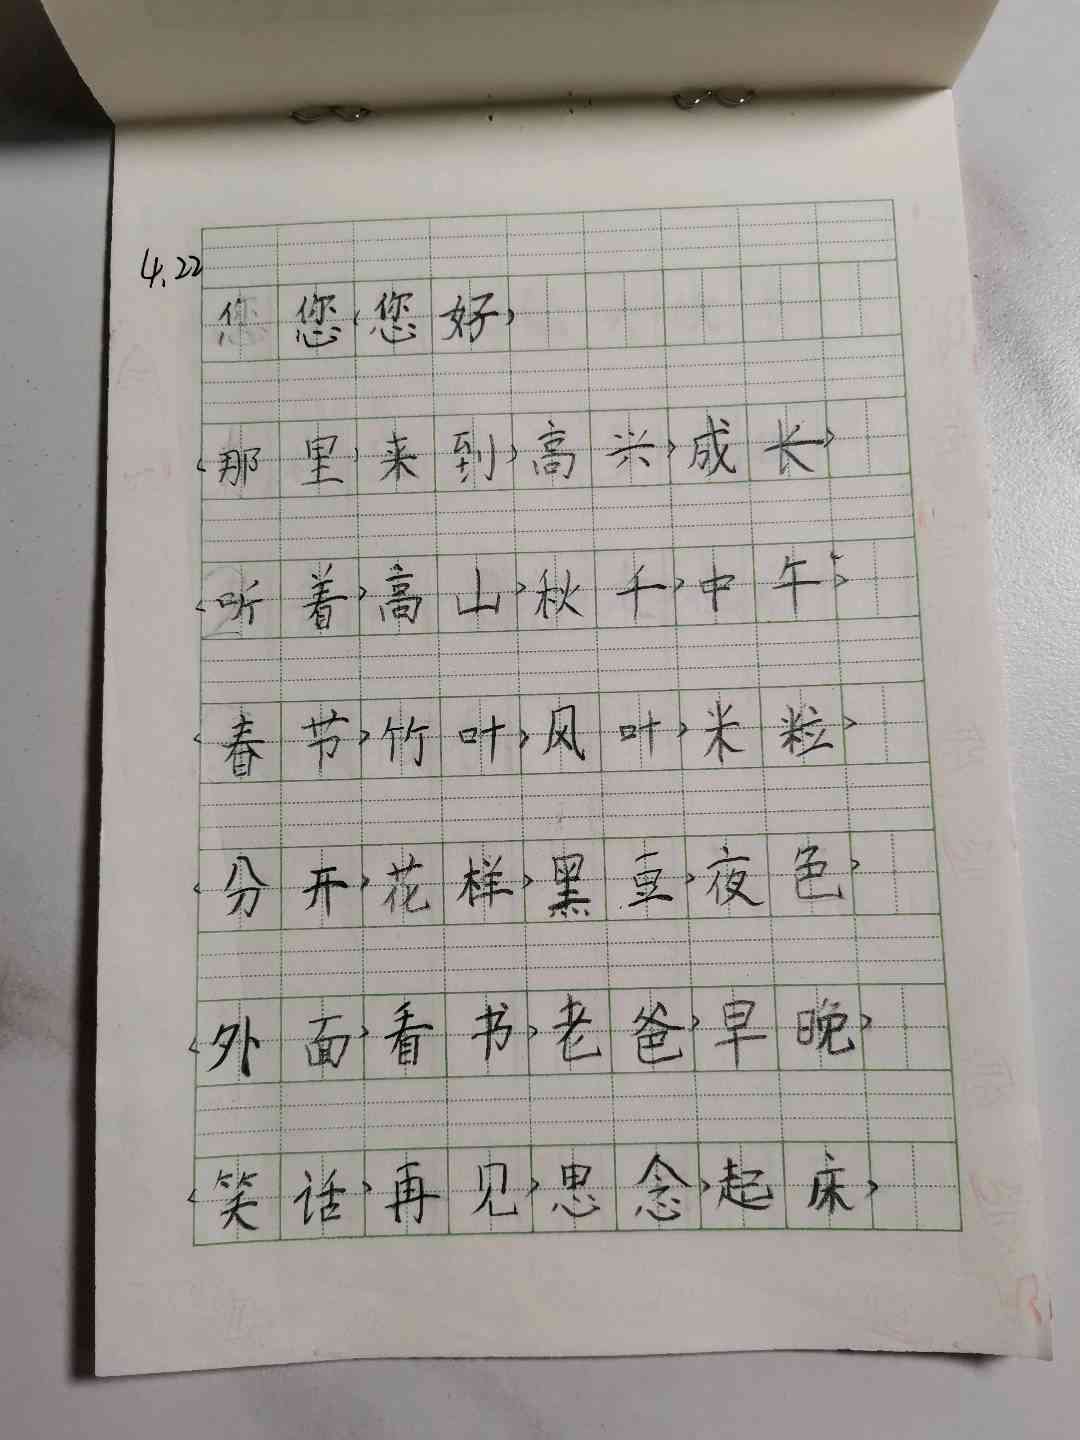 4.22
您 您 您 好
那 里 来 到 高 兴 成 长
听 着 高 山 秋 千 中 午
春 节 竹 叶 风 叶 米 粒
分 开 花 样 黑 豆 夜 色
外 面 看 书 老 爸 早 晚
笑 话 再 见 思 念 起 床